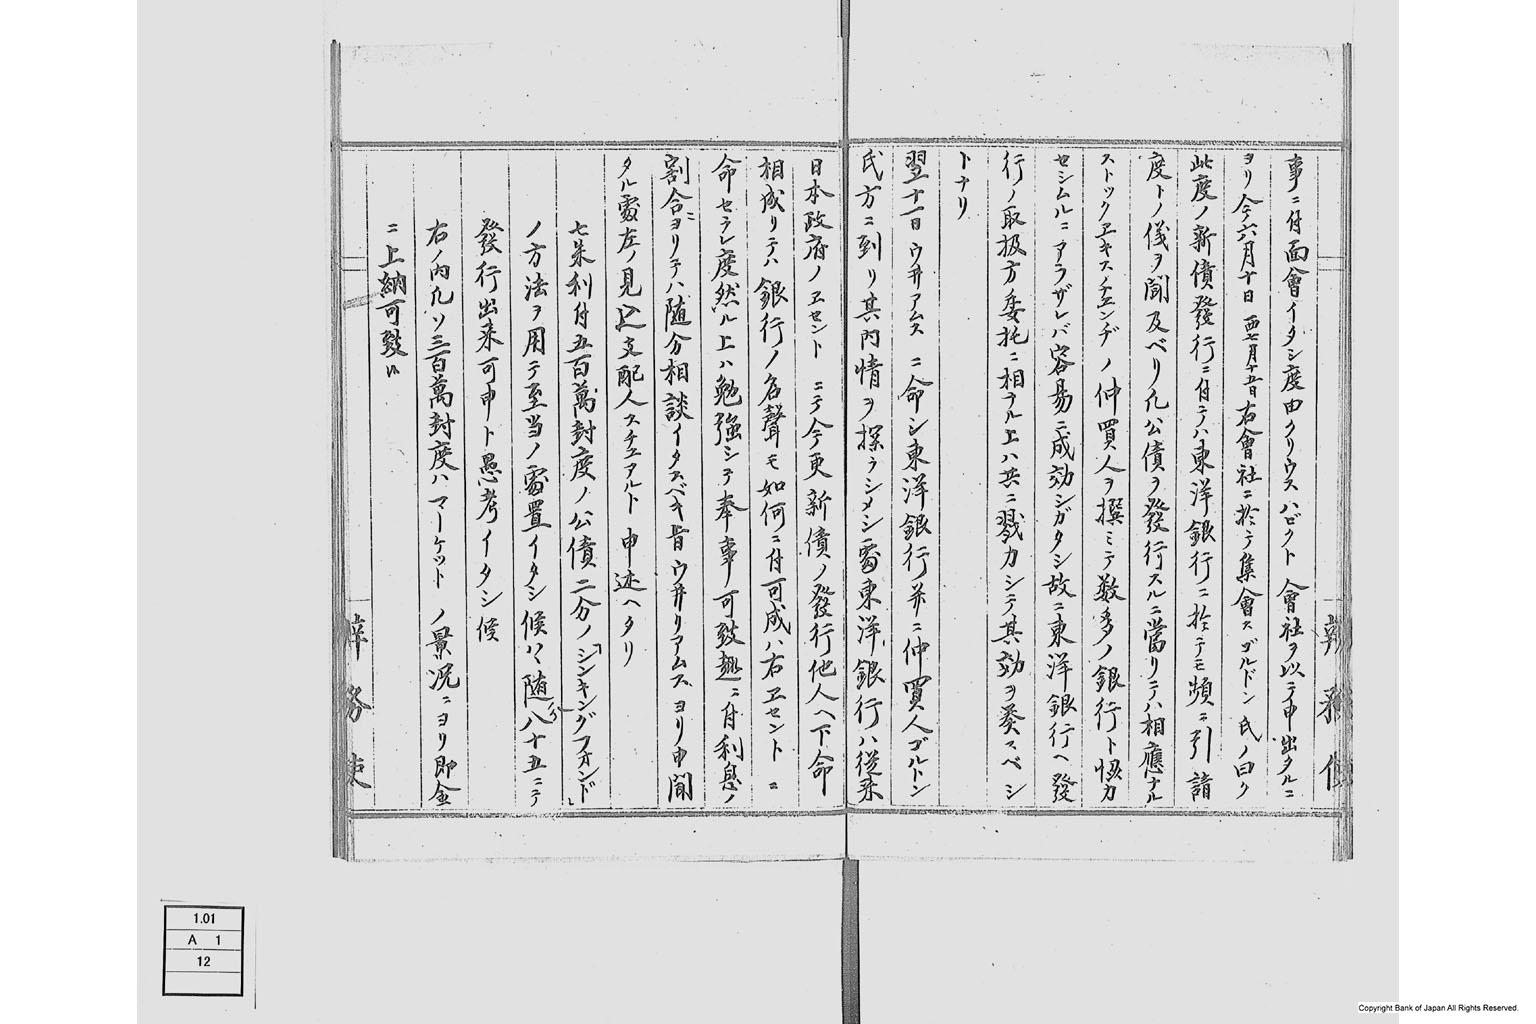 事ニ付面會イタシ度由クリウスハビクト會社ヲ以テ申出タルニ
ヨリ今六月十日西七月十五日右會社ニ於テ集會スゴルドン氏ノ曰ク
此度ノ新債發行ニ付テハ東洋銀行ニ於テモ頻ニ引請
度トノ儀ヲ聞及ベリ凡公債ヲ發行スルニ當リテハ相應ナル
ストックエキスチェンヂノ仲買人ヲ撰ミテ數多ノ銀行ト恊力
セシムルニアラザレバ容易ニ成効シガタシ故ニ東洋銀行ヘ發
行ノ取扱方委托ニ相ナル上ハ共ニ戮力シテ其効ヲ奏スベシ
トナリ
翌十一日ウ井アムスニ命シ東洋銀行并ニ仲買人ゴルトン
氏方ニ到リ其內情ヲ探ラシメシ處東洋銀行ハ從來
日本政府ノエセントニテ今更新債ノ發行他人ヘ下命
相成リテハ銀行ノ名聲モ如何ニ付可成ハ右エセントニ
命セラレ度然ル上ハ勉強シテ奉事可致趣ニ付利息ノ
割合ニヨリテハ随分相談イタスベキ旨ウ井リアムスヨリ申聞
タル處左ノ見込支配人スチュアルト申述ヘタリ
七朱利付五百萬封度ノ公債二分ノ「シンキングフオンド」
ノ方法ヲ用テ至当ノ處置イタシ候ハヽ随分八十五ニテ
發行出来可申ト愚考イタシ候
右ノ內凡ソ三百萬封度ハマーケットノ景况ニヨリ即金
ニ上納可致候
辨務使
1.01
A 1
12
Copyright Bank of Japan All Rights Reserved.